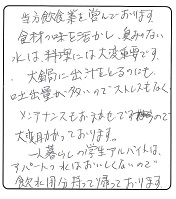 当方飲食業を営んでおります
食材の味を活かし、臭みのない
水は、料理には大変重要です。
大鍋に出汁をとるのにも、
吐出量が多いのでストレスもなく、
メンテナンスもおまかせですので
大変助かっております。
一人暮らしの学生アルバイトは、
アパートの水はおいしくないので
飲水用分持って帰っております